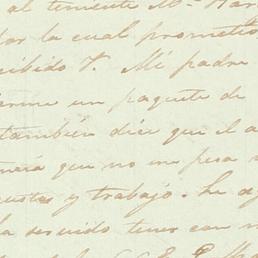 al teniente M. Har
por la cual prometio
cibido V. Mi padre
arme un paquete de
tambien dice que il a
rará que no me pesa
gustos y trabajo. Le ag
la servido tener con m